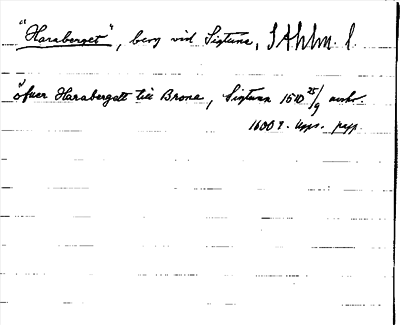 "Haraberget", berg vid Sigtuna, S Ahlm. l.
"öfuer Harabergett till Brona, Sigtuna 1510 25/9 avskr.
1600 t. Upps. papp.